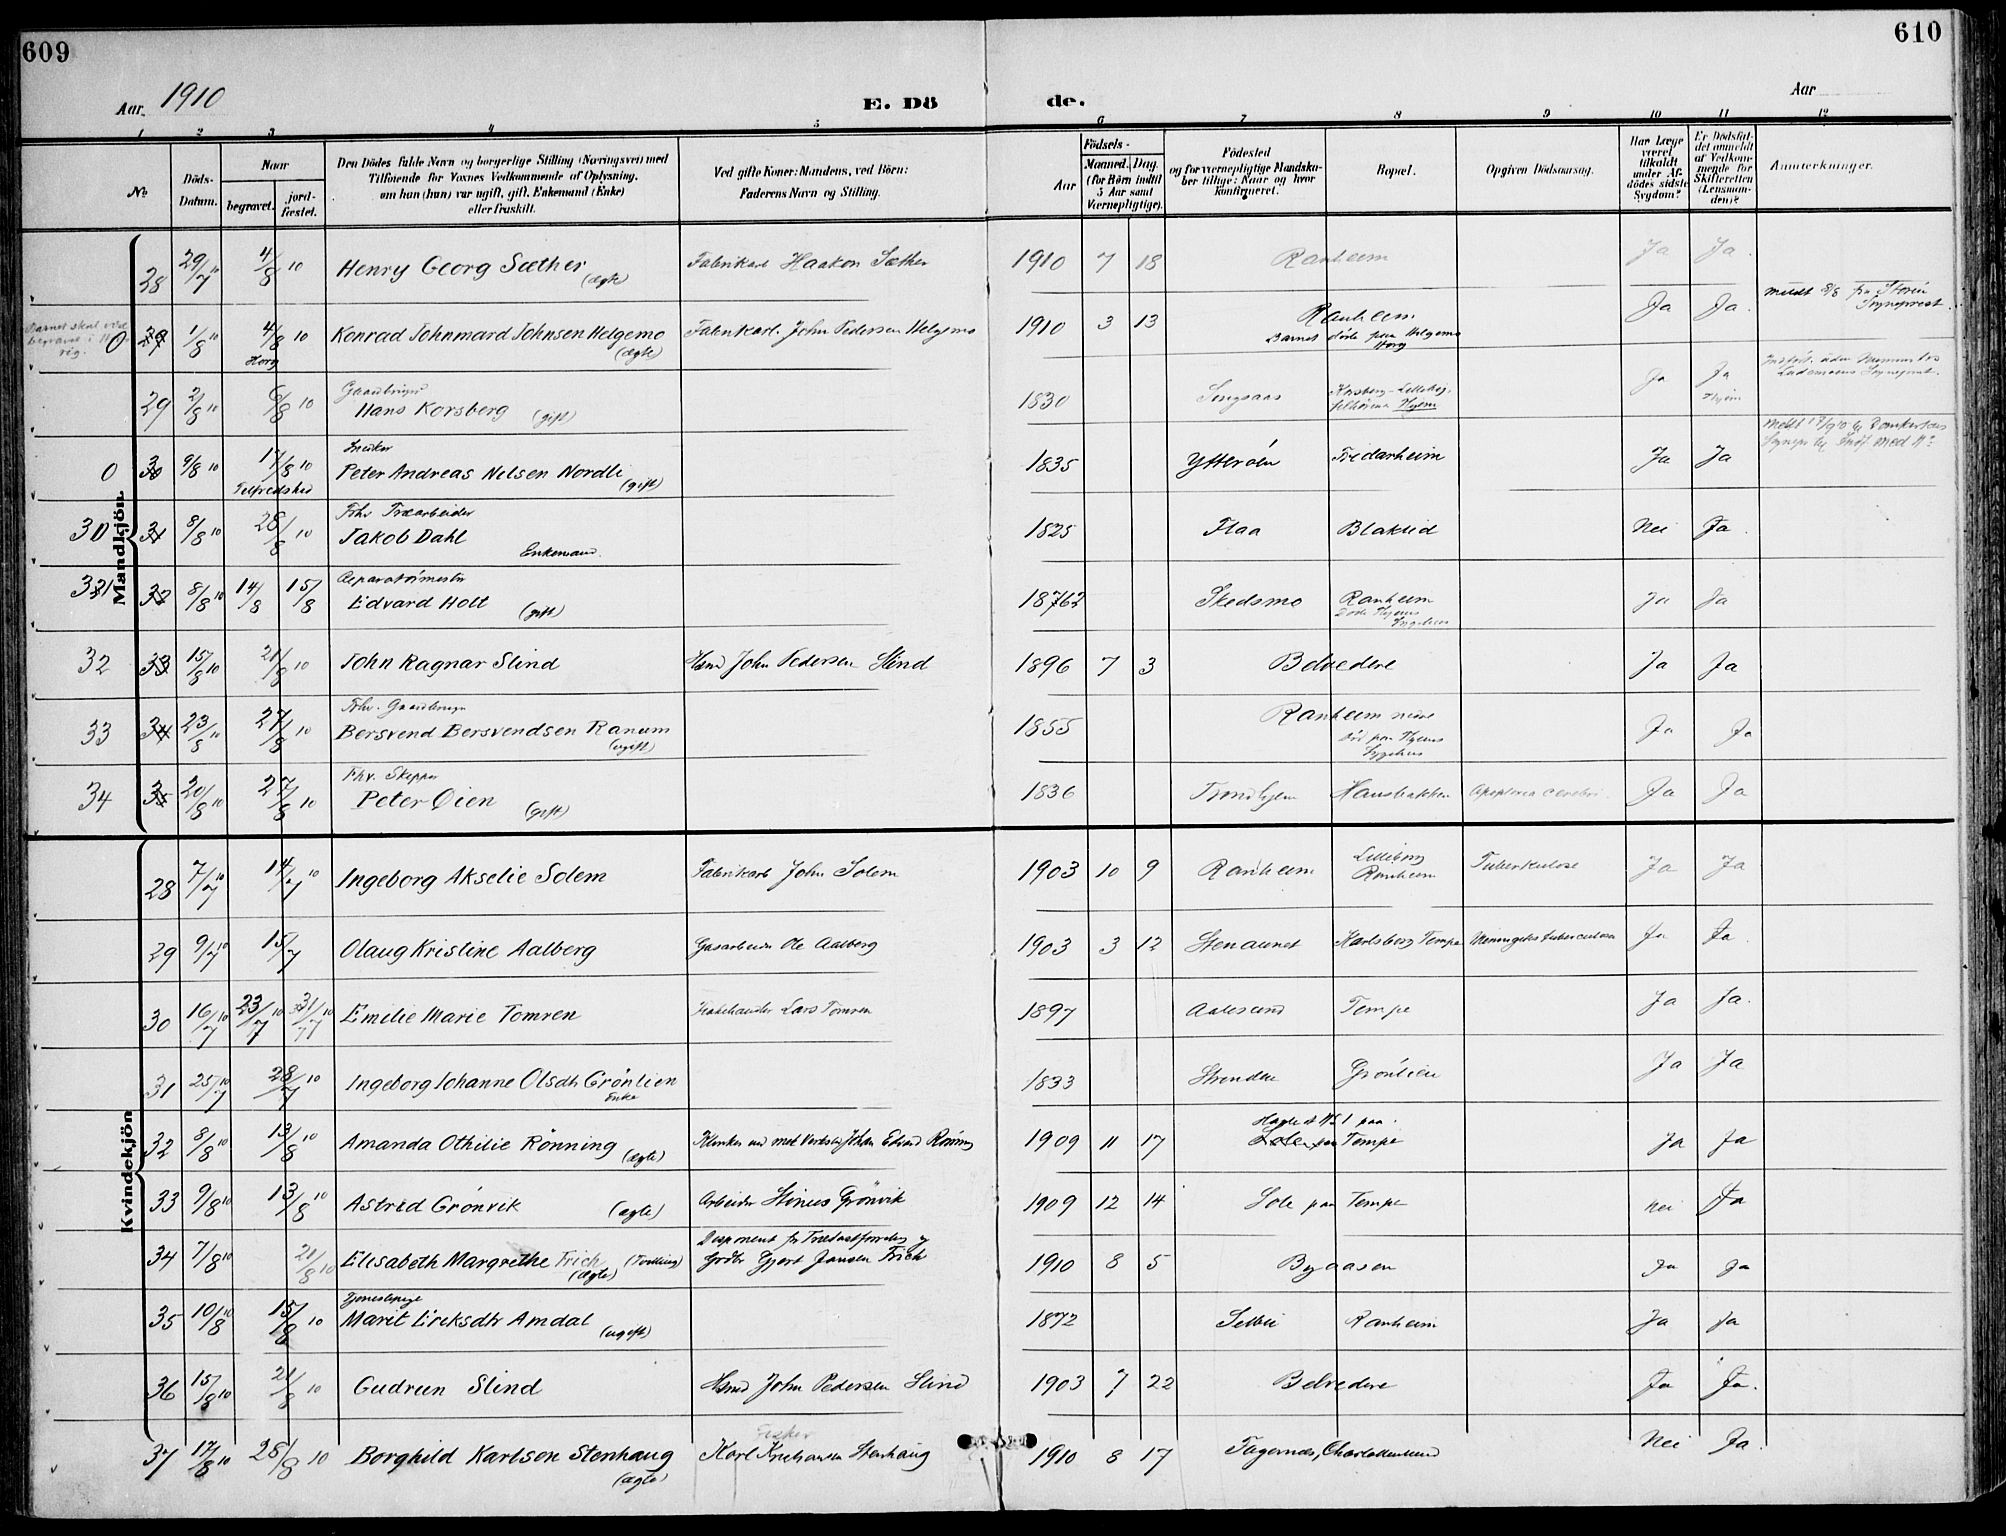 609
610
Aar 1910
E. Dö
de.
Aar
1 2 3 4 5 6 7 8 9 10 11 12
No
Döds-Datum.
Naar
begravet.
jord-fæstet.
Den Dödes fulde Navn og borgerlige Stilling (Næringsvei) med
Tilføiende for Voxnes Vedkommende af Oplysning,
om han (hun) var ugift, gift, Enkemand (Enke)
eller fraskilt.
Ved gifte Koner: Mandens, ved Börn:
Faderens Navn og Stilling.
Födsels-
Aar
Maaned. Dag.
(for Börn indtil
5 Aar samt
Værnepligtige).
Födested
og for værnepligtige Mandska-
ber tillige: Naar og hvor
konfirmeret.
Bopæl.
Opgiven Dödsaarsag.
Har Læge
været
tilkaldt
under Af-
dödes sidste
Sygdom?
Er Dödsfal-
det anmeldt
af Vedkom-
mende for
Skifteretten
(Lensman-
den)?
Anmerkninger.
Mandkjön
28 29/7 10 4/8 10 Henry Georg Sæther (ægte) Fabrikarb Haakon Sæther 1910 7 18 Ranheim Ja Ja
0 29 1/8 10 4/8 10 Horg Konrad Johnmard Johnsen Helgemo (ægte) Fabrikarb. John Pedersen Helgemo 1910 3 13 Ranheim Ja Ja
Barnet døde paa Helgemo Horg
29 2/8 10 6/8 10 Gaardbruger Hans Korsberg (gift) 1830 Singsaas Ja Ja
0 30 9/8 10 17/8 10 Snedker Peter Andreas Nilsen Nordli (gift) 1835 Ytterøen Fridarheim Ja Ja
30 31 8/8 10 28/8 10 Fhv Træarbeider Jakob Dahl Enkemand. 1825 Flaa Blaklid Nei Ja
31 32 8/8 10 14/8 15/8 Reparatörmester Edvard Holt (gift) 1876 Skedsmo Ranheim Ja Ja
32 33 15/8 10 21/8 10 John Ragnar Slind Hsmd John Pedersen Slind 1896 7 3 Belvedere Ja Ja
33 34 23/8 10 27/8 10 Fhv. Gaardbruger Bersvend Bersvendsen Ranum (ugift) 1855 Ranheim nedre Ja Ja
34 35 20/8 10 27/8 10 Fhv. Skipper Peter Øien (gift) 1836 Trondhjem Hansbakken Apoplexia cerebri. Ja Ja
Kvindekjön
28 7/7 10 14/7 10 Ingeborg Akselie Solem Fabrikarb John Solem 1903 10 9 Ranheim Lilleborg Ranheim Tuberkulose Ja Ja
29 9/7 10 15/7 Olaug Kristine Aalberg Gasarbeider Ole Aalberg 1903 3 12 Stenaunet Karlsborg Tempe Meningitis tuberculosa Ja Ja
30 16/7 10 23/7 10 31/7 10 Emilie Marie Tomren Lars Tomren 1897 Aalesund Tempe Ja Ja.
31 25/7 10 28/7 10 Ingeborg Johanne Olsdtr Grönlien Enke 1833 Strinden Grönlien Ja Ja
32 8/8 10 13/8 10 Amanda Othilie Rönning (ægte) Johan Edvard Rönning 1909 11 17 Tempe Ja Ja
33 9/8 10 13/8 10 Astrid Grönvik (ægte) Arbeider Stinus Grönvik 1909 12 14 Sole paa Tempe Nei Ja
34 7/8 10 21/8 10 Elisabeth Margrethe Frich (Tvilling) (ægte) Disponent Gjert Jansen Frich 1910 8 5 Byaasen Ja Ja
35 10/8 10 15/8 10 Tjenestepige Marit Eriksdtr Amdal (ugift) 1872 Selbu Ranheim Ja Ja
36 15/8 10 21/8 10 Gudrun Slind Hsmd John Pedersen Slind 1903 7 22 Belvedere Ja Ja.
37 17/8 10 28/8 10 Borghild Karlsen Stenhaug (ægte) Fisker Karl Kristiansen Stenhaug 1910 8 17 Fagernes, Charlottenlund Nei Ja